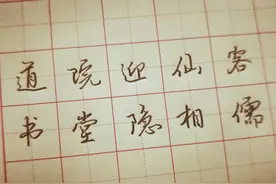 道院迎仙客
书堂隐相儒